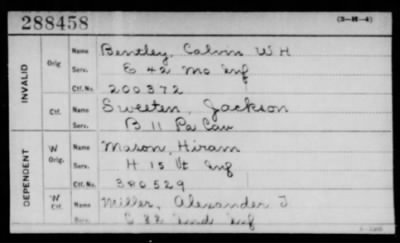 288458 (3-H-4)
INVALID
Orig Name Bentley, Calvin W H
Serv. E 42 Mo Inf
Ctf. No. 200372
Ctf. Name Sweeten, Jackson
Serv. B 11 Pa Cav
DEPENDENT
W Orig. Name Mason, Hiram
Serv. H 15 Vt Inf
Ctf. No. 380529
W Ctf. Name Miller, Alexander J
Serv. C 82 Ind Inf